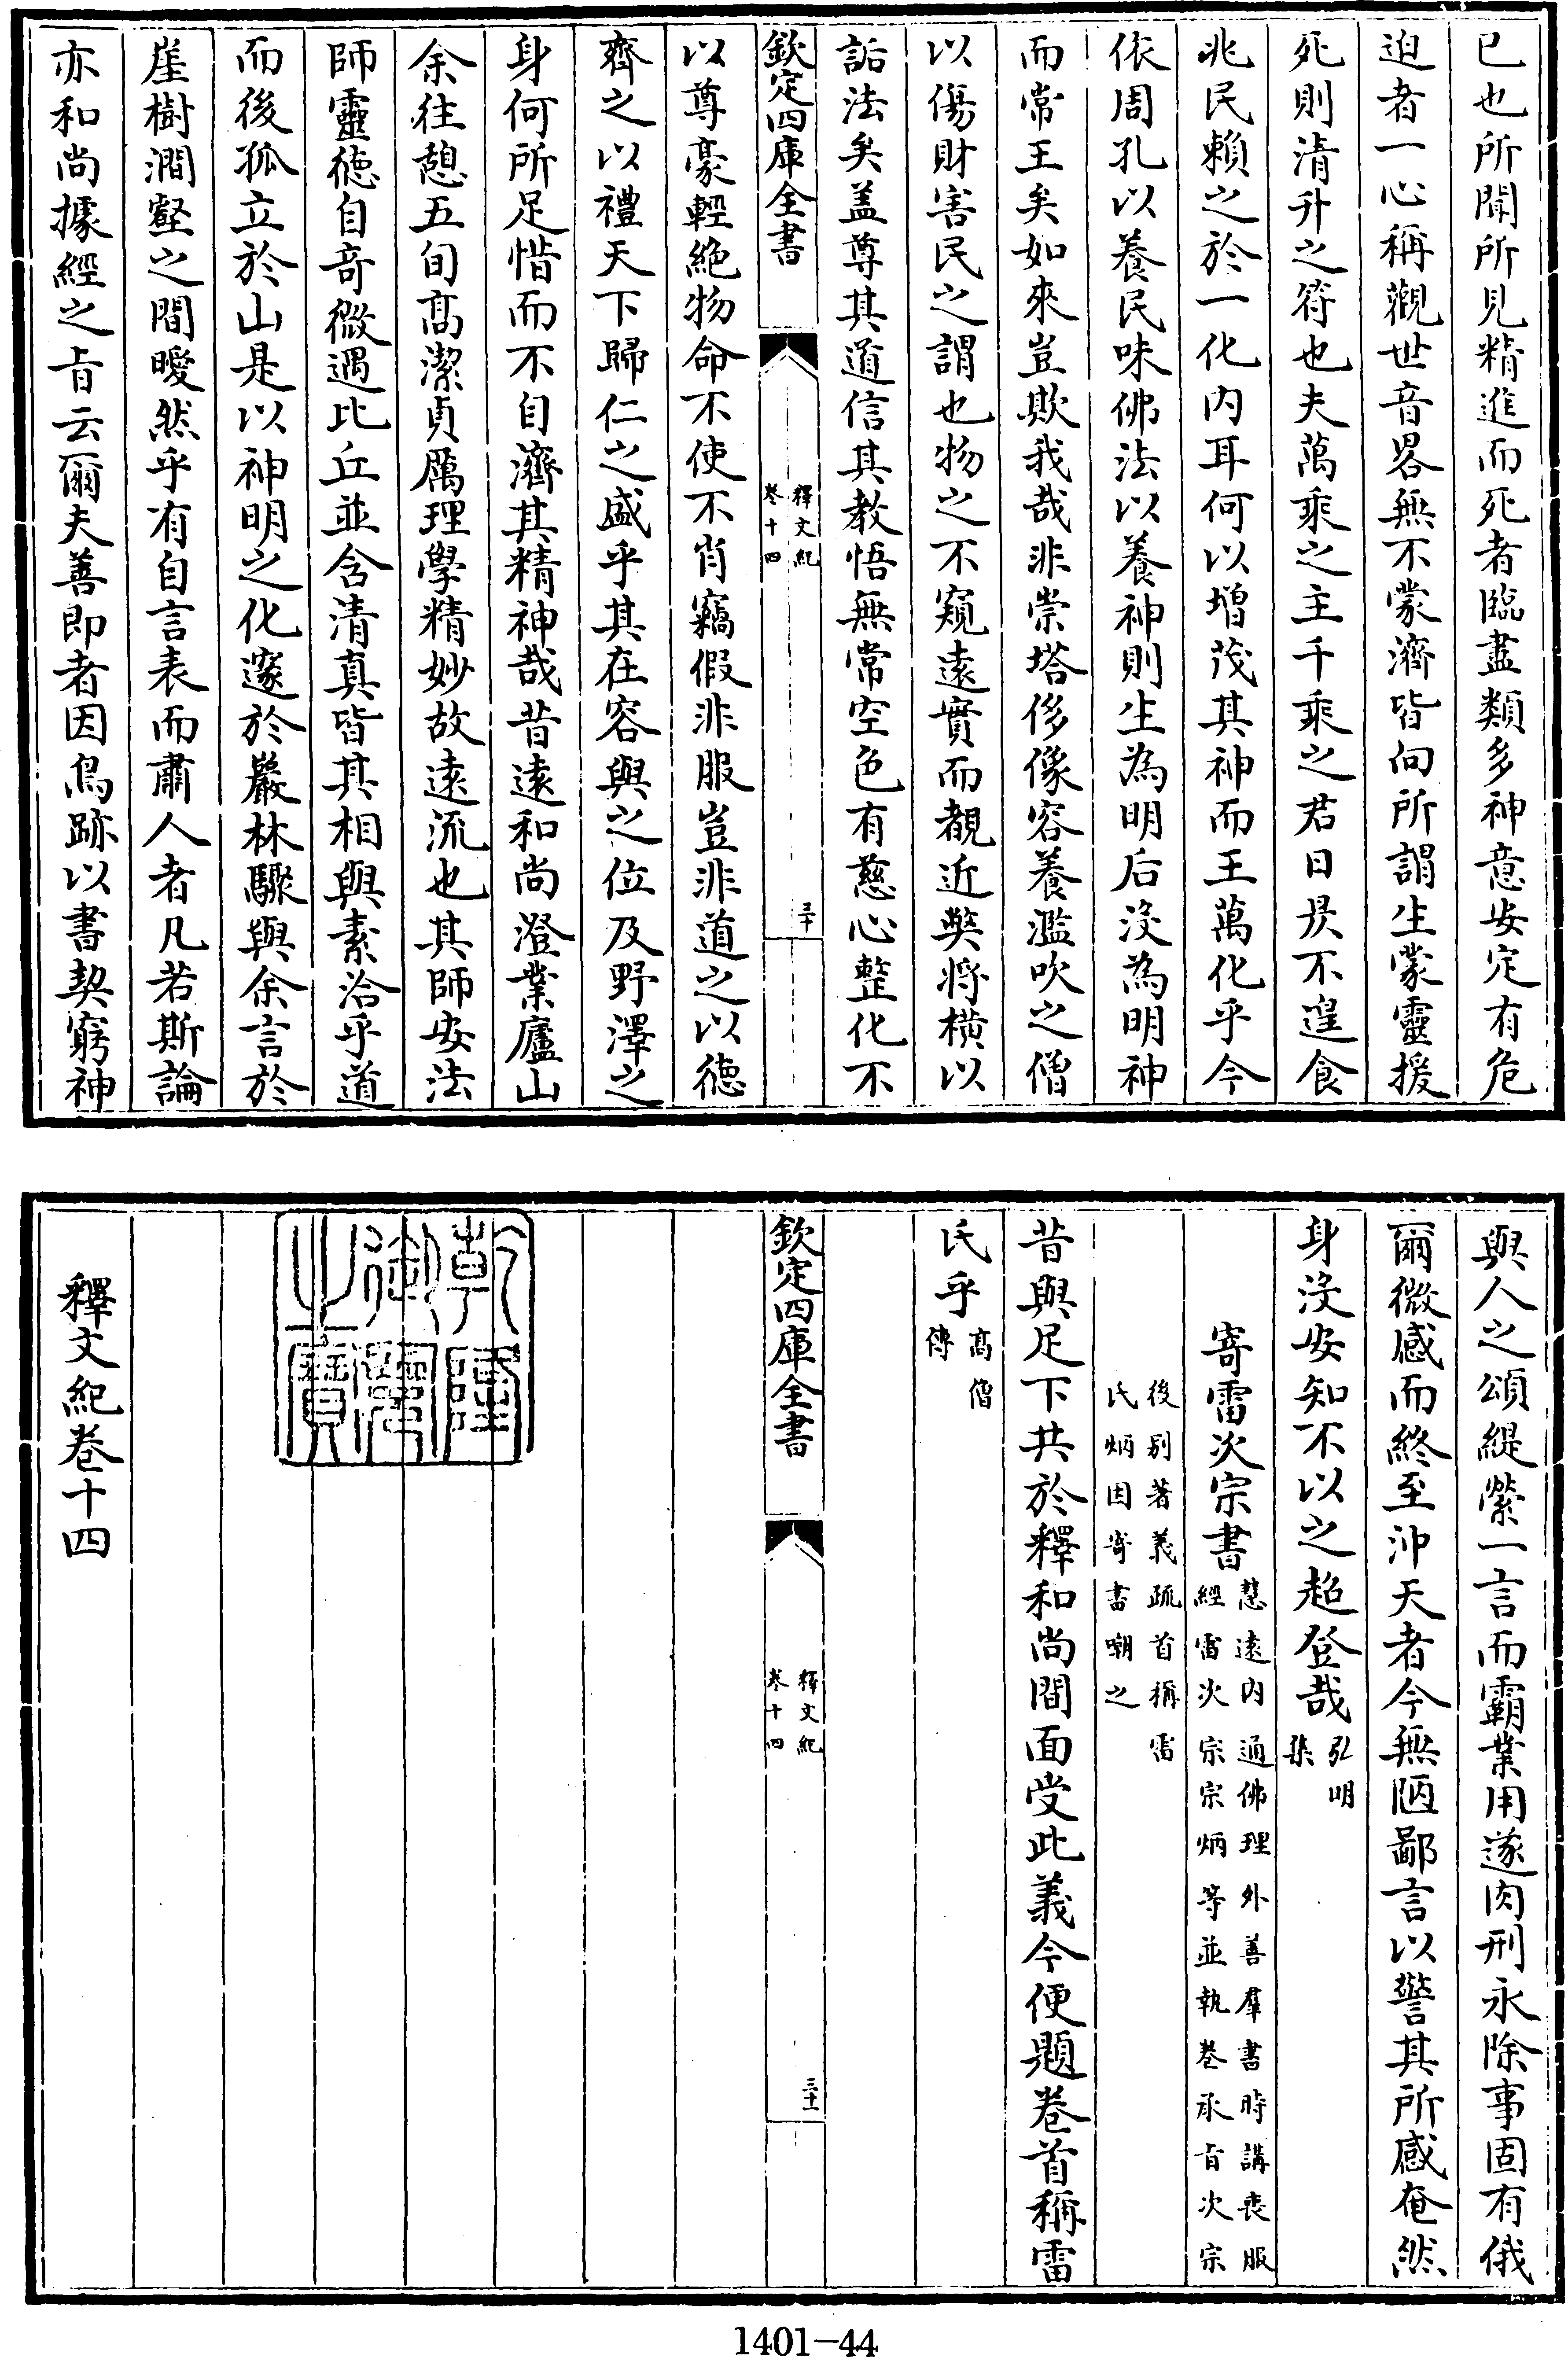 已也所聞所見精進而死者臨盡類多神意安定有危
迫者一心稱觀世音畧無不蒙濟皆向所謂生蒙靈援
死則清升之符也夫萬乘之主千乘之君日昃不遑食
兆民賴之於一化内耳何以增茂其神而王萬化乎今
依周孔以養民味佛法以養神則生為明后沒為明神
而常王矣如來豈欺我哉非崇塔侈像容養濫吹之僧
以傷財害民之謂也物之不窺遠實而覩近弊將橫以
詬法矣盖尊其道信其教悟無常空色有慈心整化不
欽定四庫全書
釋文紀
卷十四
三十
以尊豪輕絶物命不使不肖竊假非服豈非道之以德
齊之以禮天下歸仁之盛乎其在容與之位及野澤之
身何所足惜而不自濟其精神哉昔遠和尚澄業廬山
余往憩五旬高潔貞厲理學精妙故遠流也其師安法
師靈德自奇微遇比丘並含清真皆其相與素洽乎道
而後孤立於山是以神明之化邃於巖林驟與余言於
崖樹澗壑之間曖然乎有自言表而肅人者凡若斯論
亦和尚據經之㫖云爾夫善即者因鳥跡以書契窮神
與人之頌緹縈一言而霸業用遂肉刑永除事固有俄
爾微感而終至沖天者今無陋鄙言以警其所感奄然
身沒安知不以之超登哉
弘明
集
寄雷次宗書
慧遠内通佛理外善羣書時講喪服
經雷次宗宗炳等並執卷承㫖次宗
後别著義疏首稱雷
氏炳因寄書嘲之
昔與足下共於釋和尚間面受此義今便題卷首稱雷
氏乎
高僧
傳
欽定四庫全書
釋文紀
卷十四
三十一
乾隆
御覽
之寶
釋文紀卷十四
1401-44